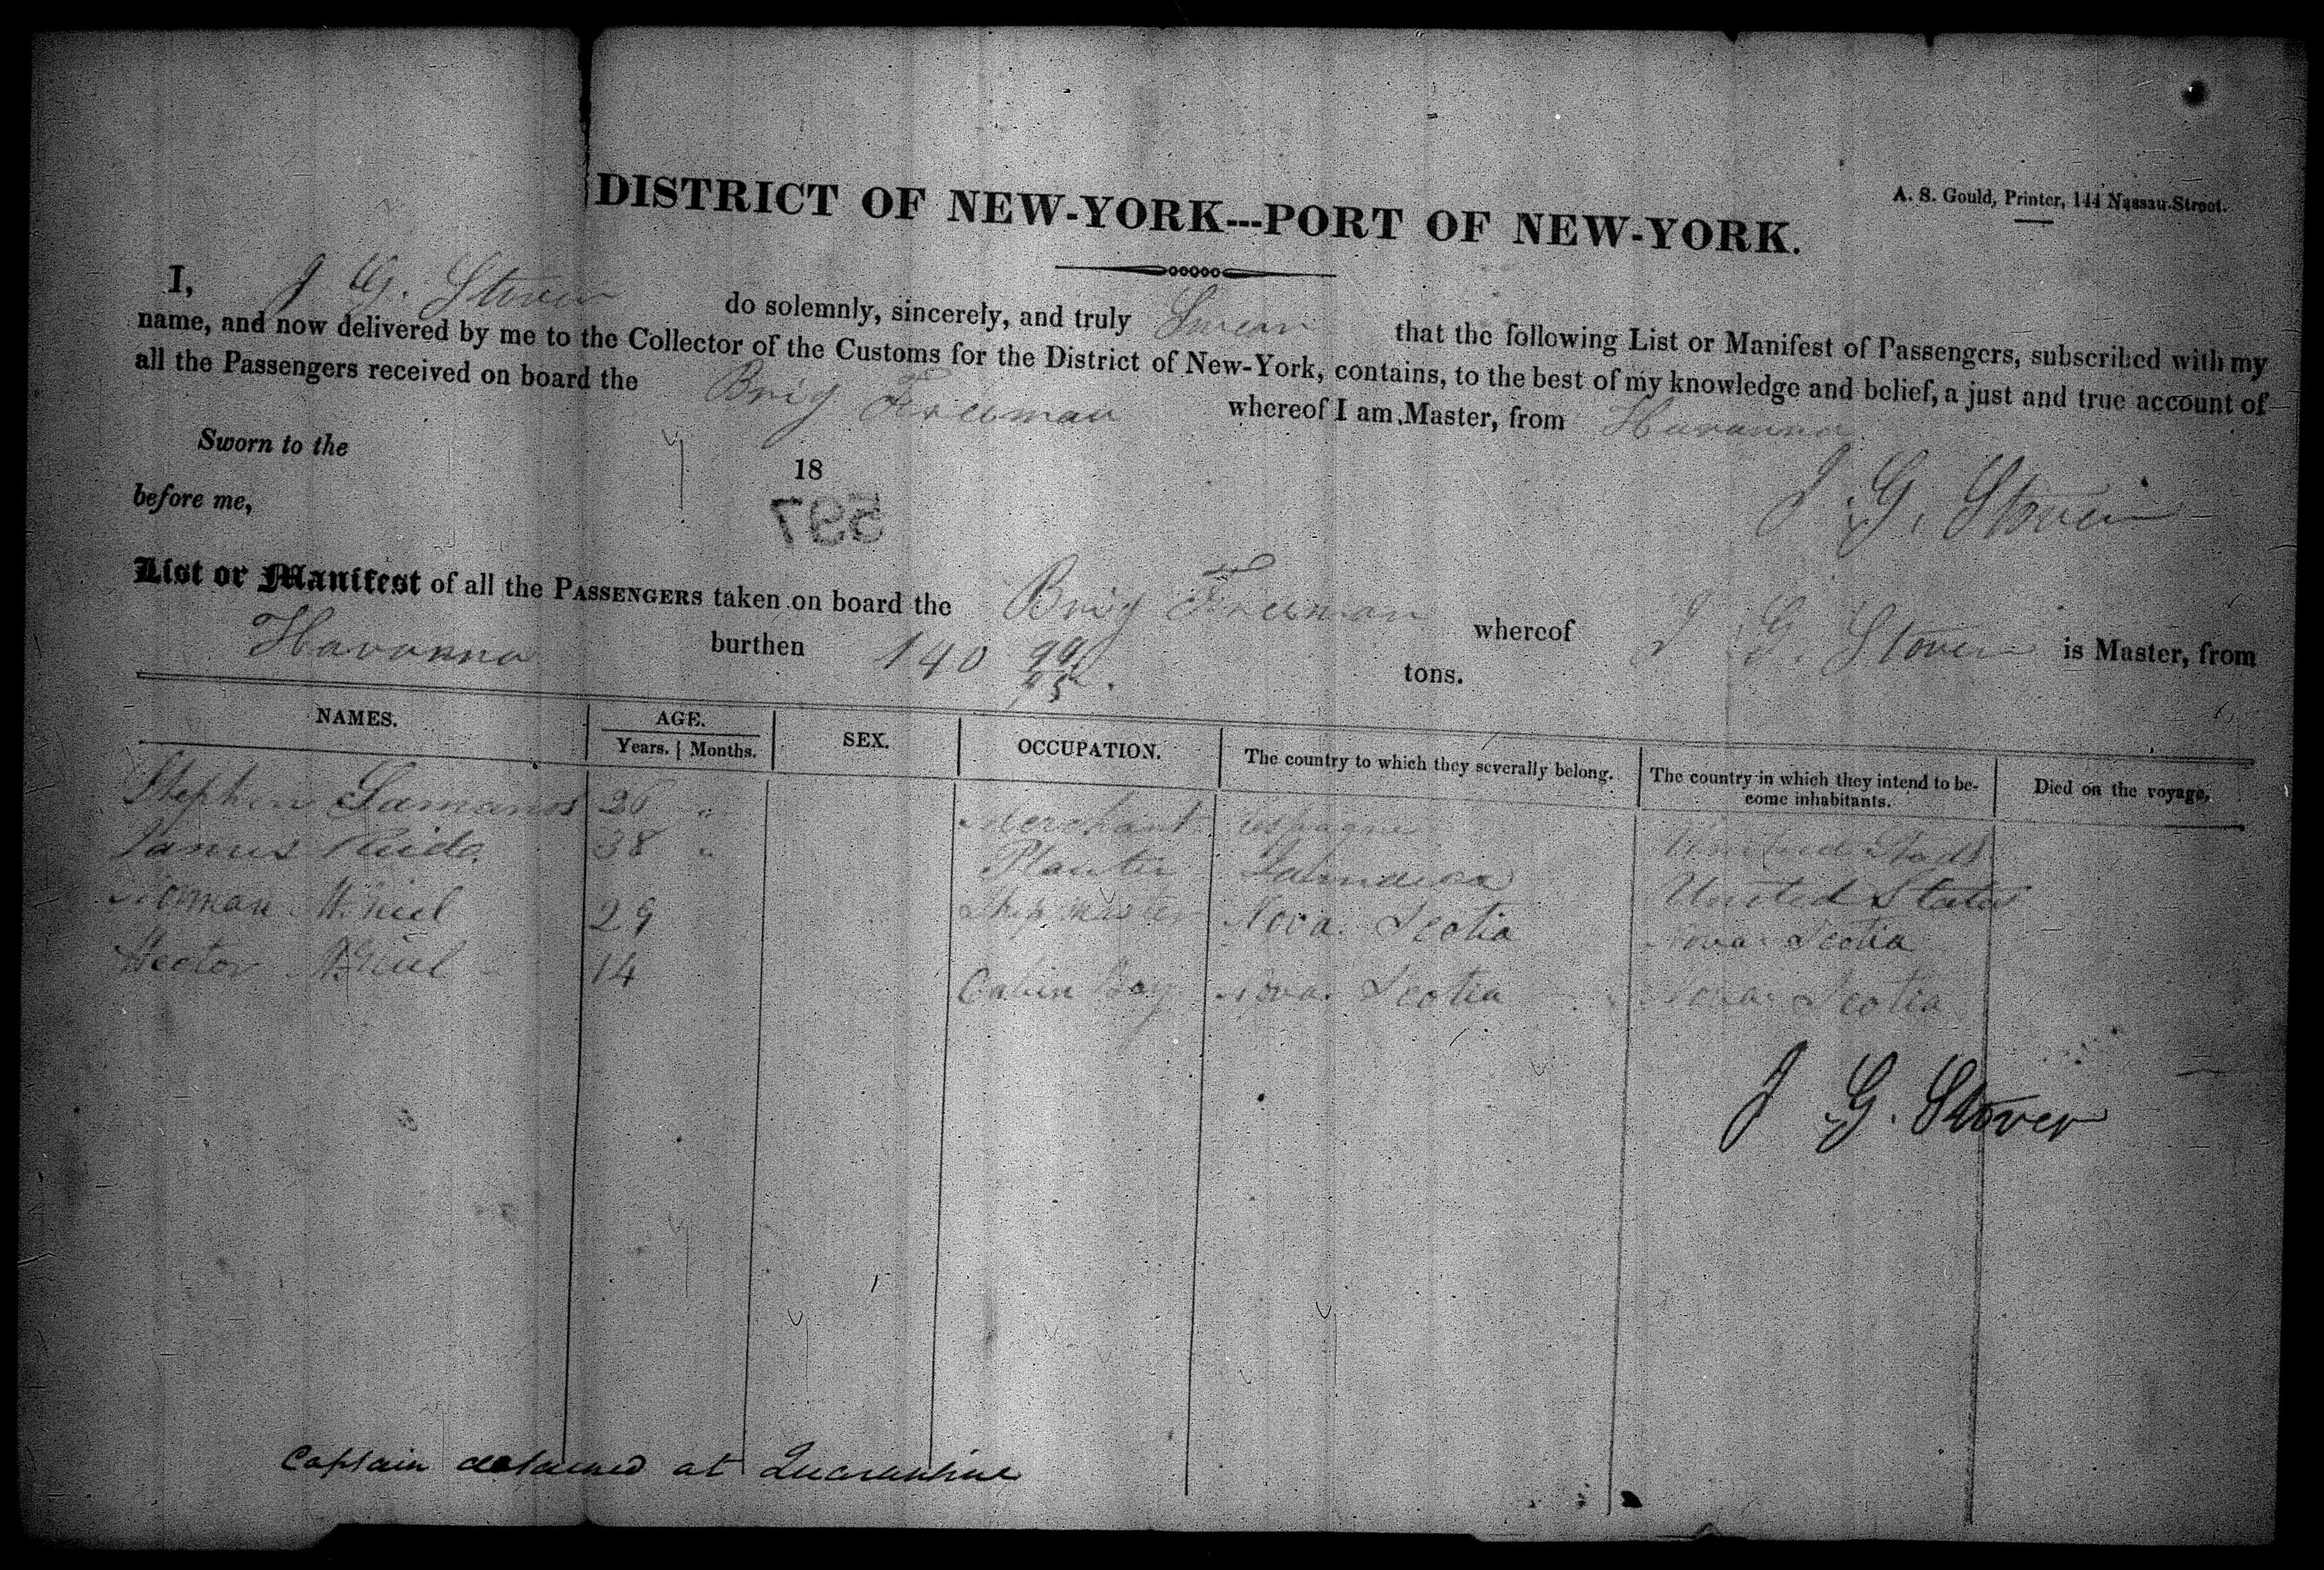 A. S. Gould, Printer, 144 Nassau-Street.
DISTRICT OF NEW-YORK---PORT OF NEW-YORK.
I, J G. Stover do solemnly, sincerely, and truly Swear that the following List or Manifest of Passengers, subscribed with my
name, and now delivered by me to the Collector of the Customs for the District of New-York, contains, to the best of my knowledge and belief, a just and true account of
all the Passengers received on board the Brig Freeman whereof I am Master, from Havanna
Sworn to the 18
before me,
J G. Stover
597
List or Manifest of all the PASSENGERS taken on board the Brig Freeman whereof J G. Stover is Master, from
Havanna burthen 140 99/95 tons.
NAMES. AGE. SEX. OCCUPATION. The country to which they severally belong. The country in which they intend to become inhabitants. Died on the voyage.
Years. Months.
Stephen 26 " Merchant Espagne United States
James 38 " Planter United States
29 Ship Master Nova Scotia Nova Scotia
Hector 14 Cabin Boy Nova Scotia Nova Scotia
J G. Stover
Captain detained at Quarantine